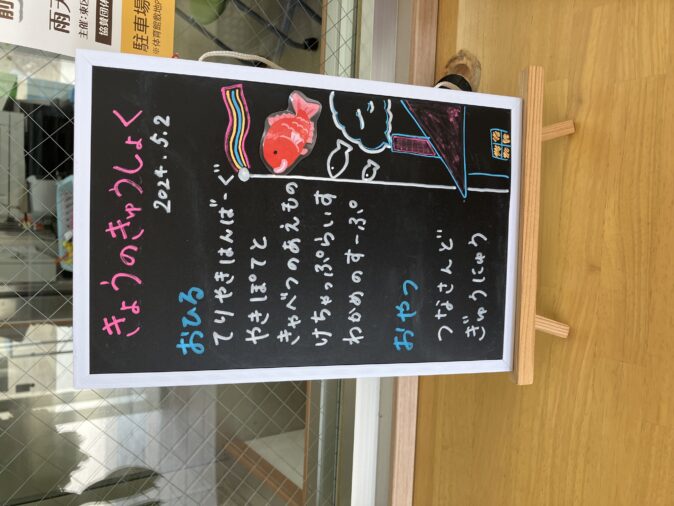 きょうのきゅうしょく
2024.5.2
おひる
てりやきはんばーぐ
やきぽてと
きゃべつのあえもの
けちゃっぷらいす
わかめのすーぷ
おやつ
つなさんど
ぎゅうにゅう
雨天
主催：東区
協賛団体
駐車場
※体育館敷地内